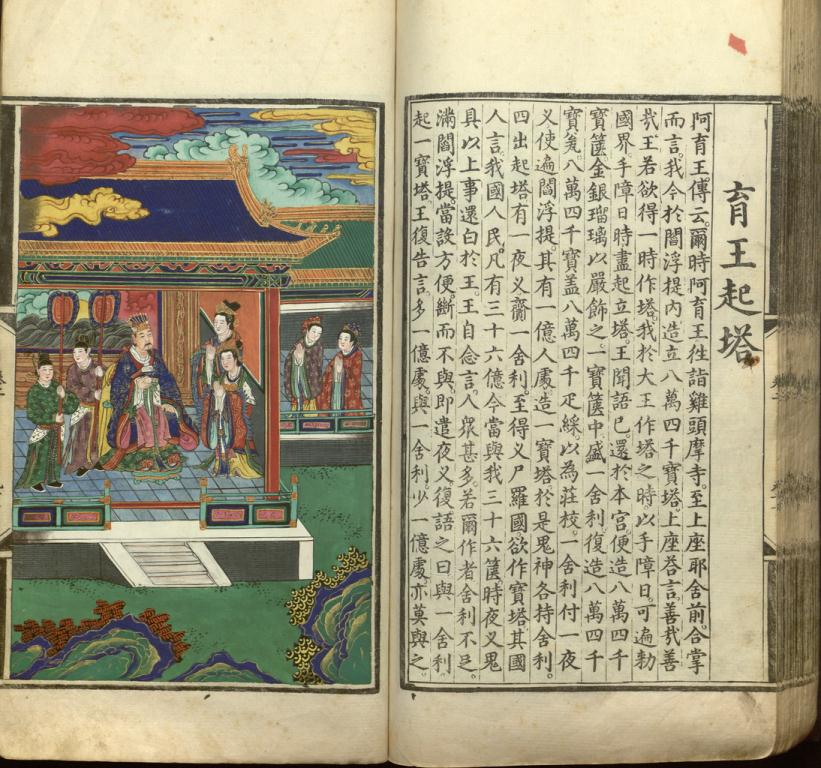 育王起塔
阿育王傳云。爾時阿育王徃詣雞頭摩寺。至上座耶舍前。合掌
而言。我今於閻浮提內造立八萬四千寶塔。上座荅言。善哉善
哉。王若欲得一時作塔。我於大王作塔之時。以手障日。可遍勑
國界。手障日時盡起立塔。王聞語已。還於本宮。便造八萬四千
寶篋。金銀瑠璃以嚴飾之。一寶篋中盛一舍利。復造八萬四千
寶瓮。八萬四千寶盖。八萬四千疋綵。以為莊校。一舍利付一夜
义。使遍閻浮提。其有一億人處。造一寶塔。於是鬼神各持舍利。
四出起塔。有一夜义齎一舍利。至得义尸羅國。欲作寶塔。其國
人言。我國人民。凡有三十六億。今當與我三十六篋。時夜义鬼
具以上事。還白於王。王自念言。人衆甚多。若爾作者。舍利不足
滿閻浮提。當設方便。斷而不與。即遣夜义。復語之曰。與一舍利
起一寶塔。王復告言。多一億處。與一舍利。少一億處。亦莫與之。